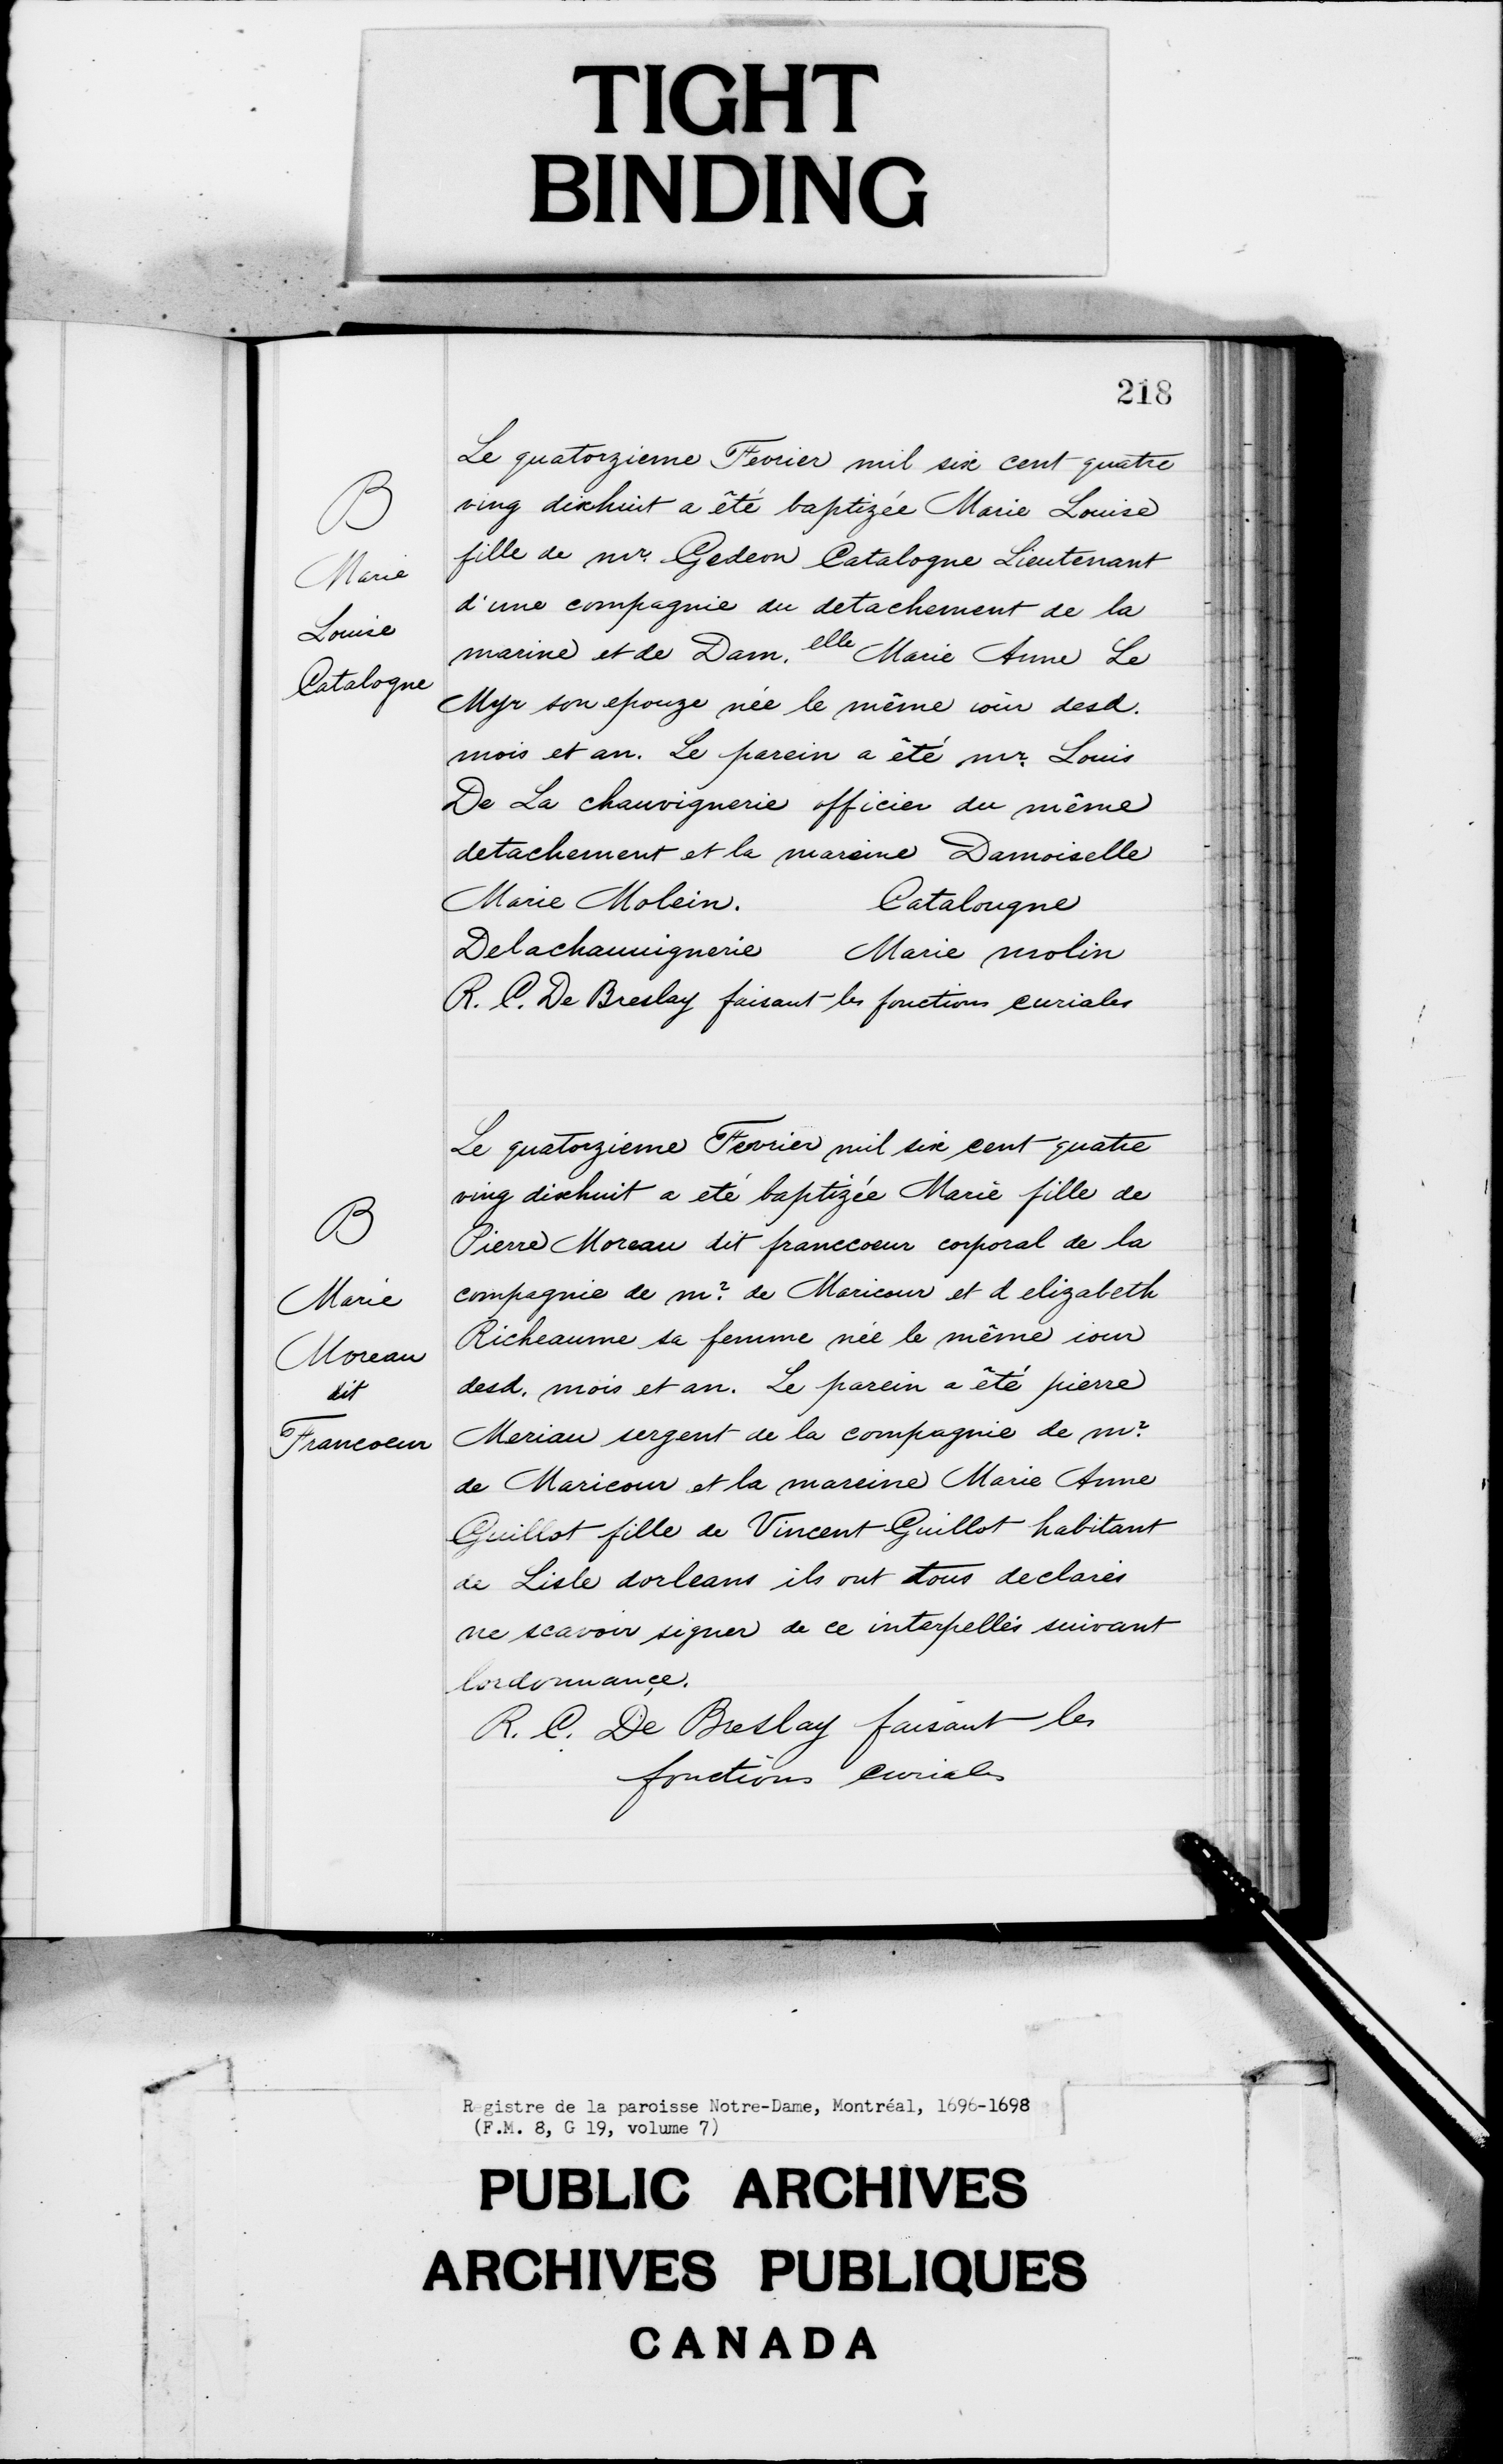 TIGHT
BINDING
218
B
Marie
Louise
Catalogne
Le quatorzieme Fevrier mil six cent quatre
ving dixhuit a êté baptizée Marie Louise
fille de mr. Gedeon Catalogne Lieutenant
d'une compagnie du detachement de la
marine et de Dam.elle Marie Anne Le
Myr son epouze née le même ioùr desd.
mois et an. Le parein a êté mr. Louis
De La chauvignerie officier du même
detachement et la mareine Damoiselle
Marie Molein. Catalougne
Delachauuignerie Marie molin
R. C. De Breslay faisant les fonctions curiales
B
Marie
Moreau
dit
Francoeur
Le quatorzieme Fevrier mil six cent quatre
ving dixhuit a eté baptizée Marie fille de
Pierre Moreau dit franccoeur corporal de la
compagnie de mr. de Maricour et d elizabeth
Richeaume sa femme née le même iour
desd. mois et an. Le parein a êté pierre
Meriau sergent de la compagnie de mr.
de Maricour et la mareine Marie Anne
Guillot fille de Vincent Guillot habitant
de Lisle dorleans ils ont tous declarés
ne scavoir signer de ce interpellés suivant
lordonnance.
R. C. De Breslay faisant les
fonctions curiales
Registre de la paroisse Notre-Dame, Montréal, 1696-1698
(F.M. 8, G 19, volume 7)
PUBLIC ARCHIVES
ARCHIVES PUBLIQUES
CANADA